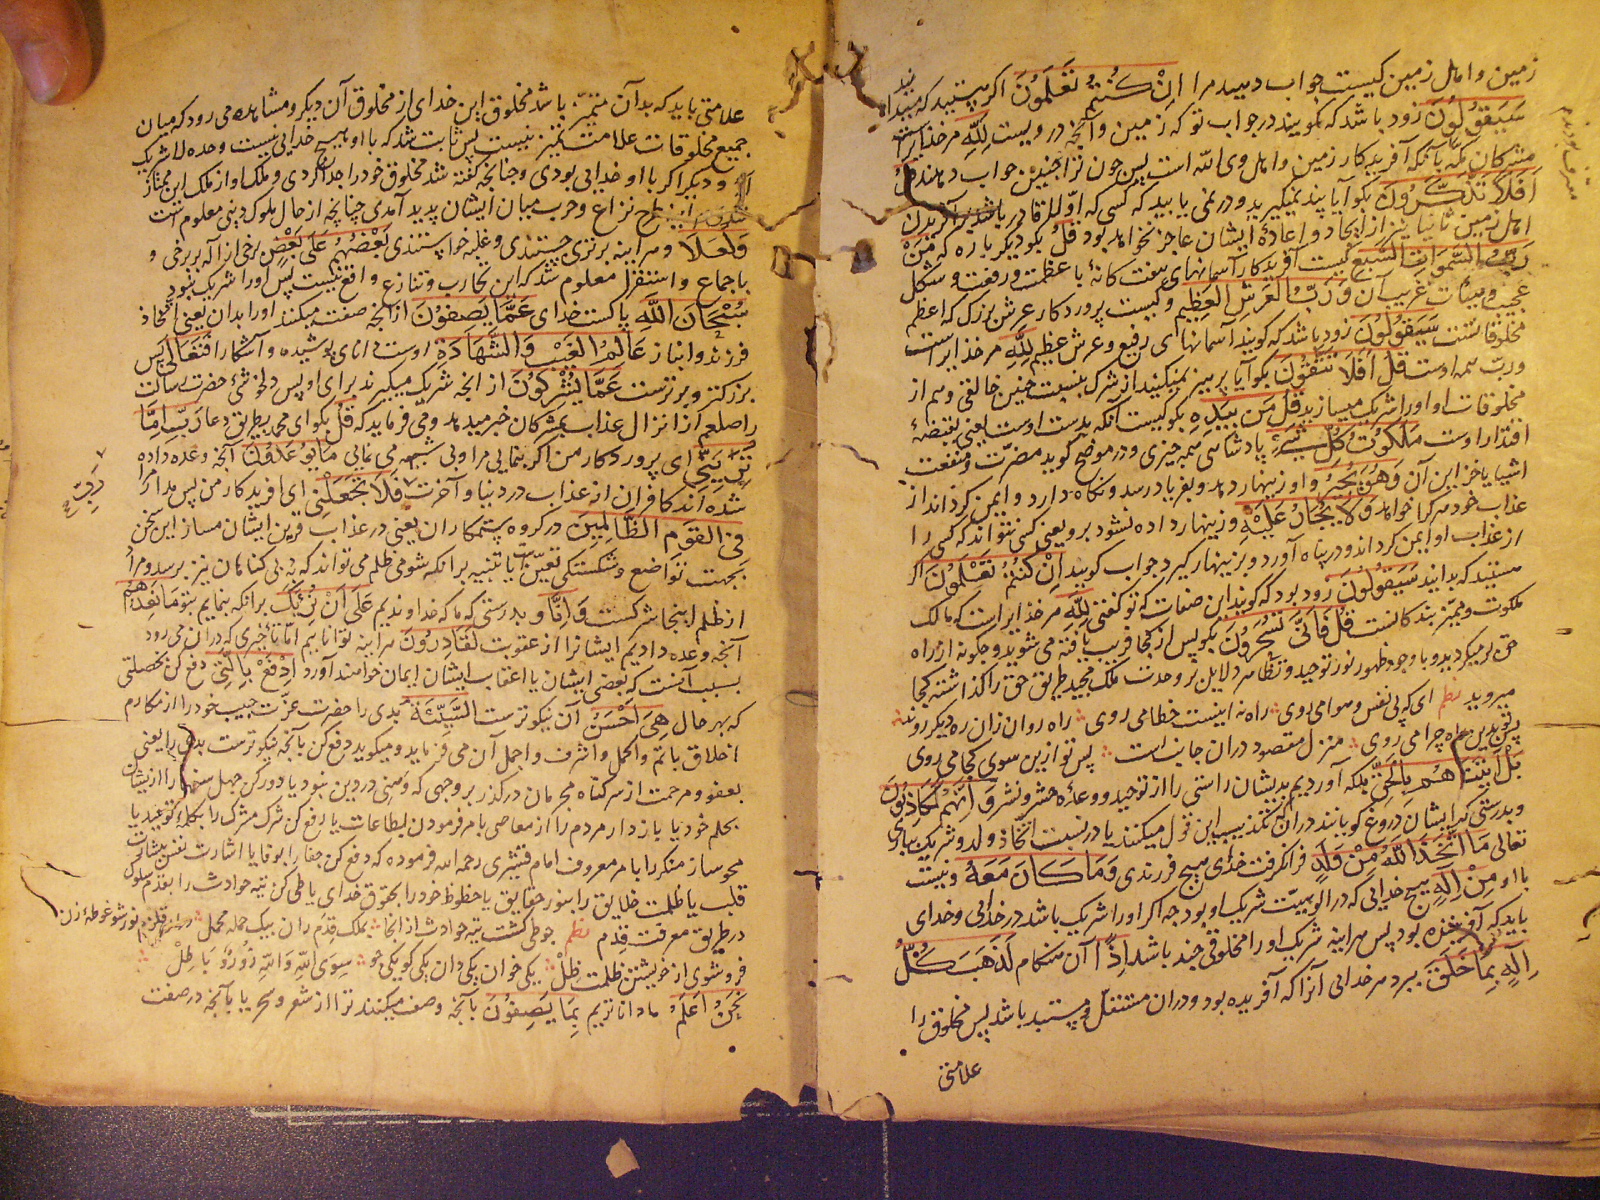 زمین و اهل زمین کیست جواب دهید مرا اِنْ کُنْتُمْ تَعْلَمُونَ اگر هستید که میدانید
سَیَقُولُونَ زود باشد که گویند در جواب تو که زمین و آنچه در ویست لِلّٰهِ مر خدایراست
مشرکان مکه بآنکه آفریدکار زمین و اهل وی الله است پس چون ترا چنین جواب دهند قُلْ
اَفَلَا تَذَکَّرُونَ بگو آیا پند نمیگیرید و در نمی یابید که کسی که اوّلا قادر باشد بر آفریدن
اهل زمین ثانیا نیز از ایجاد و اعادهٔ ایشان عاجز نخواهد بود قُلْ بگو دیگر باره که مَنْ
رَبُّ السَّمٰوَاتِ السَّبْعِ کیست آفریدکار آسمانهای هفت کانه با عظمت و رفعت و شکل
عجیب و هیات غریب آن وَ رَبُّ العَرْشِ العَظِیمِ و کیست پروردکار عرش بزرک که اعظم
مخلوقاتست سَیَقُولُونَ زود باشد که گویند آسمانهای رفیع و عرش عظیم لِلّٰهِ مر خدایراست
و رب همه اوست قُلْ اَفَلَا تَتَّقُونَ بگو آیا پرهیز نمیکنید از شرک بنسبت چنین خالقی و هم از
مخلوقات او او را شریک میسازید قُلْ مَنْ بِیَدِهِ بگو کیست آنکه بدست اوست یعنی بقبضهٔ
اقتدار اوست مَلَکُوتُ کُلِّ شَیْءٍ پادشاهی همه چیزی و در موضح گوید مضرّت و منفعت
اشیا یا خزاین آن وَ هُوَ یُجِیرُ و او زینهار دهد و بفریاد رسد و نگاه دارد و ایمن گرداند از
عذاب خود هر کرا خواهد وَ لَا یُجَارُ عَلَیْهِ و زینهار داده نشود برو یعنی کسی نتواند که کسی را
از عذاب او ایمن گرداند و در پناه آورد و بزینهار گیرد جواب گویید اِنْ کُنْتُمْ تَعْلَمُونَ اگر
هستید که بدانید سَیَقُولُونَ زود بود که گویند این صفات که تو گفتی لِلّٰهِ مر خدایراست که مالک
ملکوت و مجیر بندکانست قُلْ فَاَنّٰی تُسْحَرُونَ بگو پس از کجا فریب یافته می شوید و چگونه از راه
حق بر میگردید و با وجود ظهور نور توحید و تظاهر دلایل بر وحدت ملک مجید طریق حق را گذاشته کجا
میروید نظم ای که پی نفس و هوا می روی راه نه اینست خطا می روی راه روان زان ره دیگر روند
پس تو بدین راه چرا می روی منزل مقصود دران جانب است پس تو ازین سوی کجا می روی
بَلْ اَتَیْنَاهُمْ بِالْحَقِّ بلکه آوردیم بدیشان راستی را از توحید و وعدهٔ حشر و نشر وَ اِنَّهُمْ لَکَاذِبُونَ
و بدرستی که ایشان دروغ گویانند دران که تکذیب این قول میکنند یا در نسبت اتّخاذ ولد و شریک بباری
تعالی مَا اتَّخَذَ اللّٰهُ مِنْ وَلَدٍ فرا نکرفت خدای هیچ فرزندی وَ مَا کَانَ مَعَهُ و نیست
با او مِنْ اِلٰهٍ هیچ خدایی که در الوهیّت شریک او بود چه اکر او را شریک باشد در خدایی و خدای
باید که آفریننده بود پس هر اینه شریک او را مخلوقی چند باشد اِذًا آن هنکام لَذَهَبَ کُلُّ
اِلٰهٍ بِمَا خَلَقَ ببرد هر خدایی آنرا که آفریده بود و دران مستقلّ و مستبد باشد پس مخلوق را
علامتی
علامتی باید که بدآن متمیّز باشد مخلوق این خدای از مخلوق آن دیگر و مشاهده می رود که میان
جمیع مخلوقات علامت تمیّز نیست پس ثابت شد که با او هیچ خدایی نیست وحده لا شریک
و دیگر اکر با او خدایی بودی و چنانچه گفته شد مخلوق خود را جدا کردی و ملک او از ملک این ممتاز
طرح نزاع و حرب میان ایشان پدید آمدی چنانچه از حال ملوک دینی معلوم است
وَ لَعَلَا و هر اینه برتری جستندی و غلبه خواستندی بَعْضُهُمْ عَلٰی بَعْضٍ برخی از آلهه بر برخی و
باجماع و استقرا معلوم شد که این تحارب و تنازع واقع نیست پس او را شریک نبود
سُبْحَانَ اللّٰهِ پاکست خدای عَمَّا یَصِفُونَ از آنچه صفت میکنند او را بدان یعنی اتّخاذ
فرزند و انباز عَالِمُ الْغَیْبِ وَ الشَّهَادَةِ اوست دانای پوشیده و آشکارا فَتَعَالٰی پس
بزرکتر و برترست عَمَّا یُشْرِکُونَ از آنچه شریک میگیرند برای او پس دلخوشی حضرت رسالت
را صلعم از انزال عذاب بمشرکان خبر میدهد و می فرماید که قُلْ بگو ای محمد بطریق دعا رَبِّ اِمَّا
تُرِیَنِّی ای پروردکار من اگر بنمایی مرا و بی شبهه می نمایی مَا یُوعَدُونَ آنچه وعده داده
شده اند کافران از عذاب در دنیا و آخرت فَلَا تَجْعَلْنِی ای آفریدکار من پس مدار مرا
فِی القَوْمِ الظَّالِمِینَ در گروه ستمکاران یعنی در عذاب قرین ایشان مساز این سخن
بجهت تواضع و شکستگی یا تنبیه بر آنکه شومی ظلم می تواند که به بی گناهان نیز برسد و مراد
از ظلم اینجا شرکست وَ اِنَّا و بدرستی که ما که خداوندیم عَلٰی اَنْ نُرِیَکَ بر آنکه بنماییم بتو مَا نَعِدُهُمْ
آنچه وعده دادیم ایشانرا از عقوبت لَقَادِرُونَ هر اینه تواناییم امّا تأخیری که دران می رود
بسبب آنست که بعضی ایشان یا اعقاب ایشان ایمان خواهند آورد اِدْفَعْ بِالَّتِی دفع کن بخصلتی
که بهر حال هِیَ اَحْسَنُ آن نیکوترست السَّیِّئَةَ بدی را حضرت عزّت حبیب خود را از مکارم
اخلاق باتم و اکمل و اشرف و اجمل آن می فرماید و میگوید دفع کن بآنچه نیکوترست بدی را یعنی
بعفو و مرحمت از سر گناه مجرمان درگذر بر وجهی که وهنی در دین نبود یا دور کن جهل سفها را از ایشان
بحلم خود یا باز دار مردم را از معاصی بامر فرمودن بطاعات یا رفع کن شرک مشرک را بکلمهٔ توحید یا
محو ساز منکر را بامر معروف امام قشیری رحمه الله فرموده که دفع کن جفا را بوفا یا اشارت نفس بشارت
قلب یا ظلمت خلایق را بنور حقایق یا حظوظ خود را بحقوق خدای یا طی کن تیه حوادث را بقدم سلوک
در طریق معرفت قدم نظم چو طی کشت تیه حوادث از آنجا بملک قدم ران بیک حمله محمل
فرو شوی از خویشتن ظلمت ظلّ یکی خوان یکی دان یکی گو یکی جو سِوَی اللّٰهِ وَ اللّٰهِ زُورٌ وَ بَاطِلْ
نَحْنُ اَعْلَمُ ما داناتریم بِمَا یَصِفُونَ بآنچه وصف میکنند ترا از شعر و سحر یا بآنچه در صفت